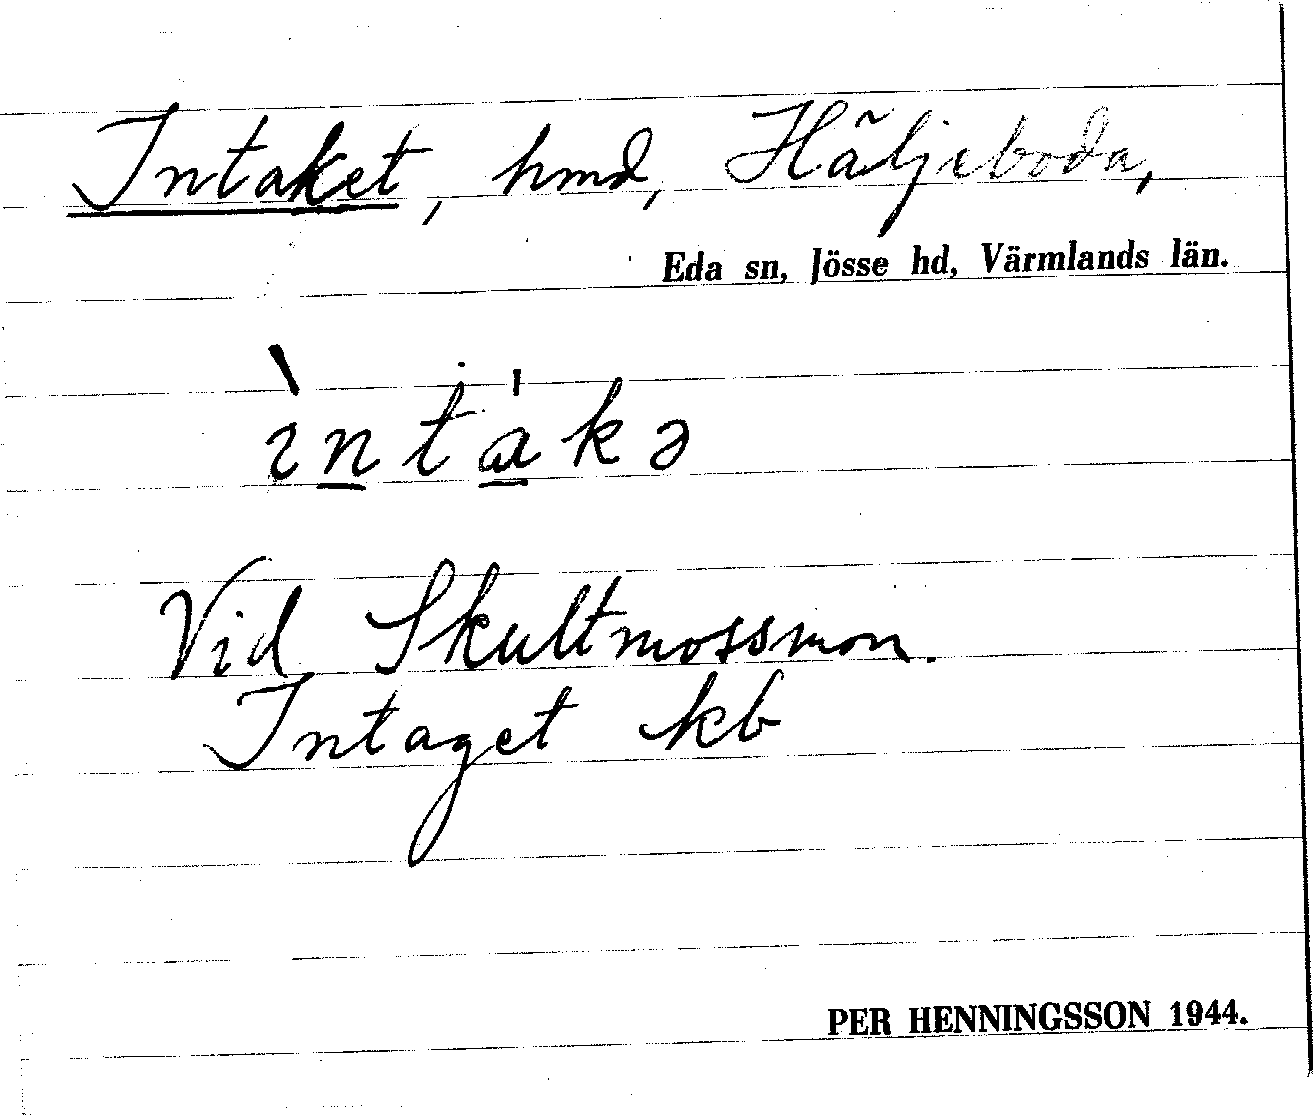 Intaket, hmd, Häljeboda,
Eda sn, Jösse hd, Värmlands län.
ìntákə
Vid Skultmossmon.
Intaget kb
PER HENNINGSSON 1944.